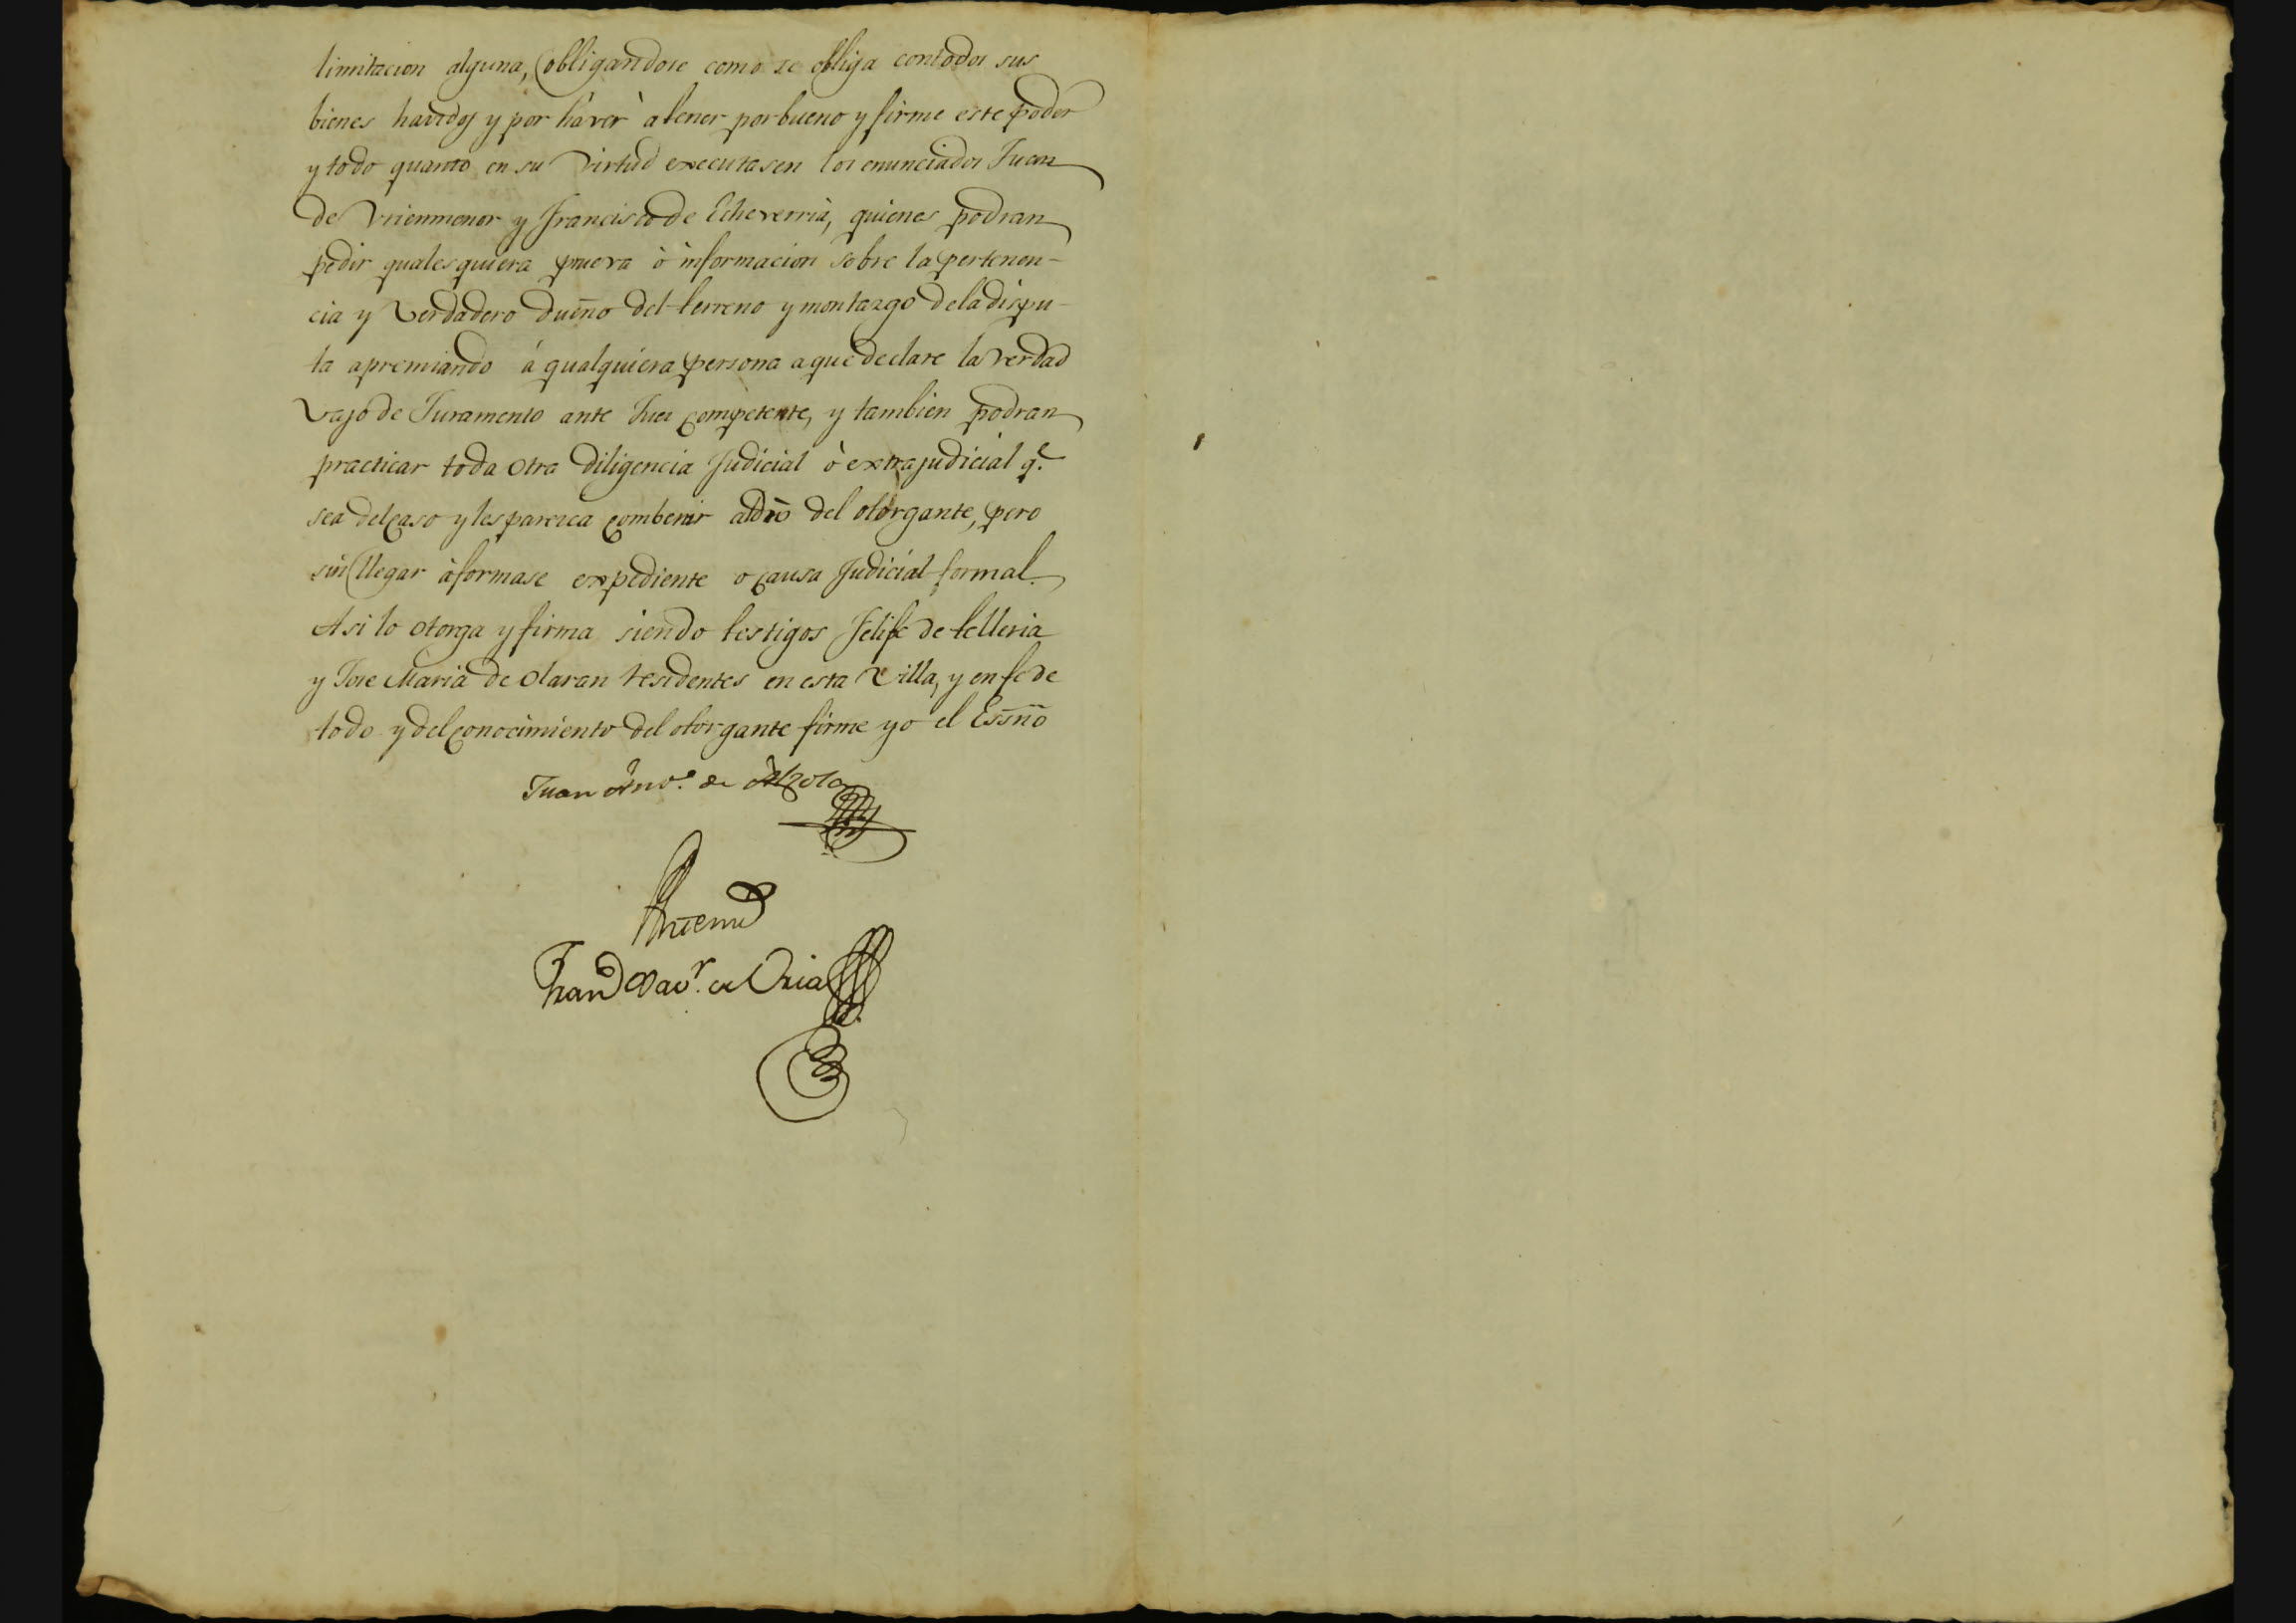 limitacion alguna, obligandose como se obliga contodos sus
bienes havidos y por haver à tener por bueno y firme este poder
y todo quanto en su virtud executasen los enunciados Juan
de menor y Francisco de Echeverria, quienes podran
pedir quales quiera prueva ò informacion sobre la pertenen-
cia y Verdadero dueño del terreno y montazgo dela dispu-
ta apremiando á qualquiera persona a que declare la verdad
vajo de Juramento ante Juez competente, y tambien podran
practicar toda otra diligencia Judicial ò extrajudicial q.e
sea del caso y les parezca combenir al dro del otorgante, pero
sin llegar à formase expediente o causa Judicial formal.
Asi lo otorga y firma siendo testigos Felife de telleria
y Jose Maria de Olaran residentes en esta Villa, y en fe de
todo y del conocimiento del otorgante firme yo el Essno
Juan Anto. de Alzola
Antemi
Fran.co Xav.r de Oria